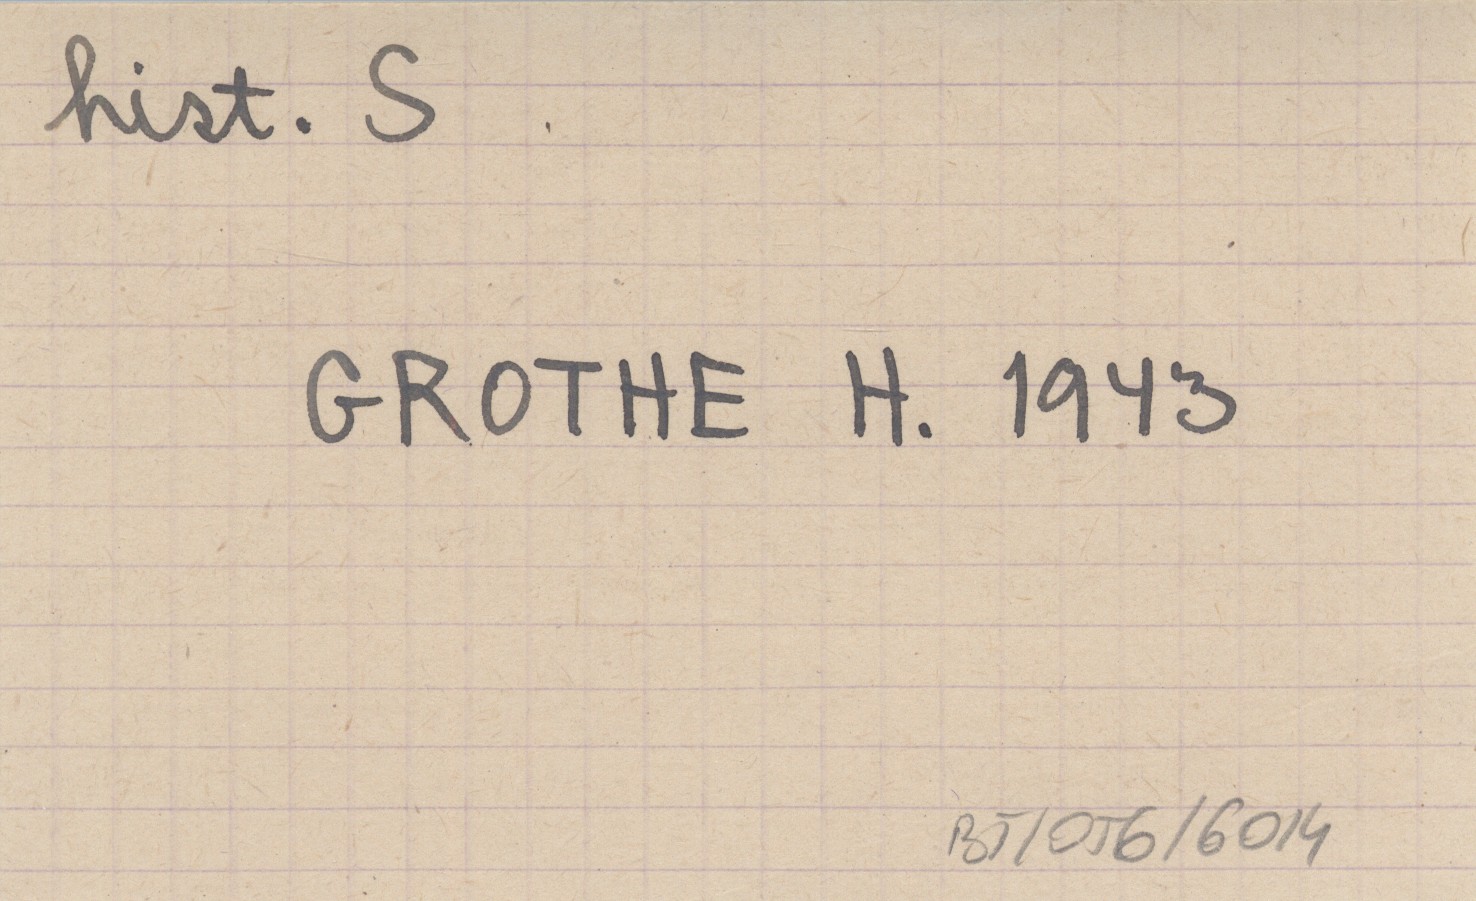 hist. S
GROTHE H. 1943
BJ/OJ6/6014